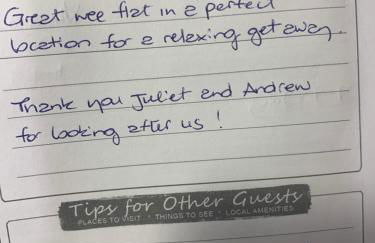 Great wee flat in a perfect
location for a relaxing getaway.
Thank you Juliet and Andrew
for looking after us !
Tips for Other Guests
PLACES TO VISIT * THINGS TO SEE * LOCAL AMENITIES